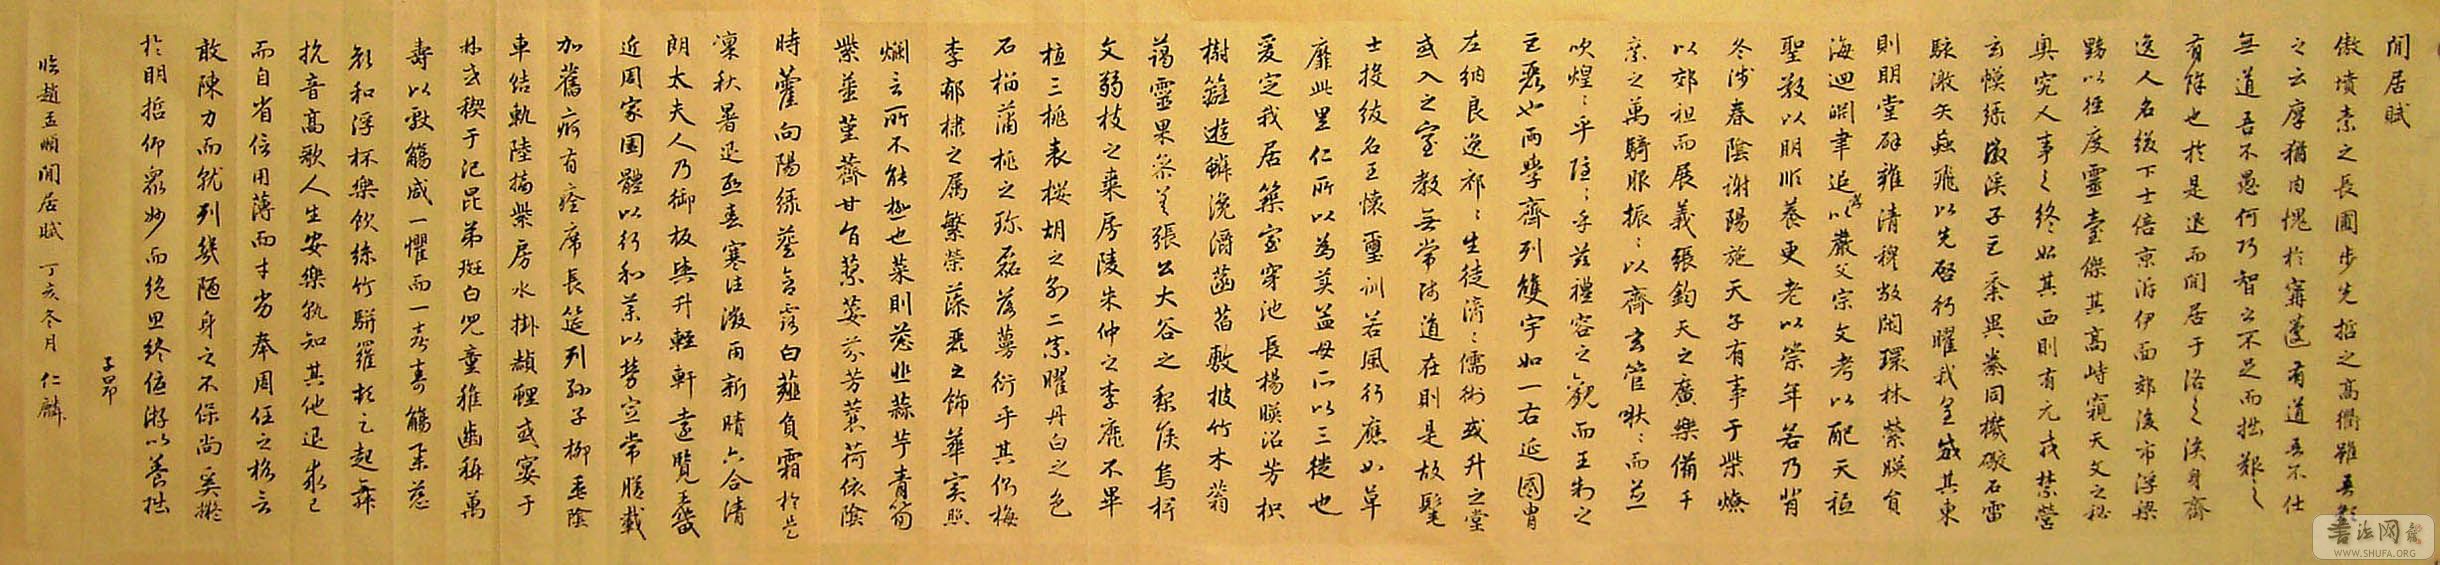 閒居賦
傲墳素之長圃步先哲之高衢雖吾顏
之云厚猶內愧於甯蘧有道吾不仕
無道吾不愚何巧智之不足而拙艱之
有餘也於是退而閒居于洛之涘身齊
逸人名綴下士倍京泝伊面郊後市浮梁
黝以徑度靈臺傑其高峙窺天文之秘
奧究人事之終始其西則有元戎禁營
玄幙綠徽溪子巨黍異絭同機礮石雷
駭激矢蝱飛以先啓行曜我皇威其東
則明堂辟雍清穆敞閑環林縈映負
海迴淵聿追以孝嚴父宗文考以配天秪
聖敬以明順養更老以崇年若乃背
冬涉春陰謝陽施天子有事于柴燎
以郊祖而展義張鈞天之廣樂備千
乘之萬騎服振〻以齊玄管啾〻而並
吹煌〻乎隱〻乎茲禮容之觀而王制之
巨麗也兩學齊列雙宇如一右延國胄
左納良逸祁〻生徒濟〻儒術或升之堂
或入之室教無常師道在則是故髦
士投紱名王懷璽訓若風行應如草
靡此里仁所以為美孟母所以三徙也
爰定我居築室穿池長楊映沼芳枳
樹籬遊鱗瀺灂菡萏敷披竹木蓊
藹靈果參差張公大谷之梨侯烏椑
文弱枝之棗房陵朱仲之李靡不畢
植三桃表櫻胡之別二柰曜丹白之色
石榴蒲桃之珍磊落蔓衍乎其側梅
李郁棣之屬繁榮藻麗之飾華實照
爛言所不能極也菜則葱韭蒜芋青筍
紫薑堇薺甘旨蓼荾芬芳蘘荷依陰
時藿向陽綠葵含露白薤負霜於是
凜秋暑退熙春寒往微雨新晴六合清
朗太夫人乃御板輿升輕軒遠覽王畿
近周家園體以行和藥以勞宣常膳載
加舊痾有痊席長筵列孫子柳垂陰
車結軌陸摘紫房水掛赬鯉或宴于
林或禊于汜昆弟斑白兒童稚齒稱萬
壽以獻觴咸一懼而一喜壽觴舉慈
顏和浮杯樂飲絲竹駢羅頓足起舞
抗音高歌人生安樂孰知其他退求己
而自省信用薄而才劣奉周任之格言
敢陳力而就列幾陋身之不保尚奚擬
於明哲仰眾妙而絕思終優游以養拙
子昂
臨趙孟頫閒居賦 丁亥冬月 仁麟
書法网
WWW.SHUFA.ORG